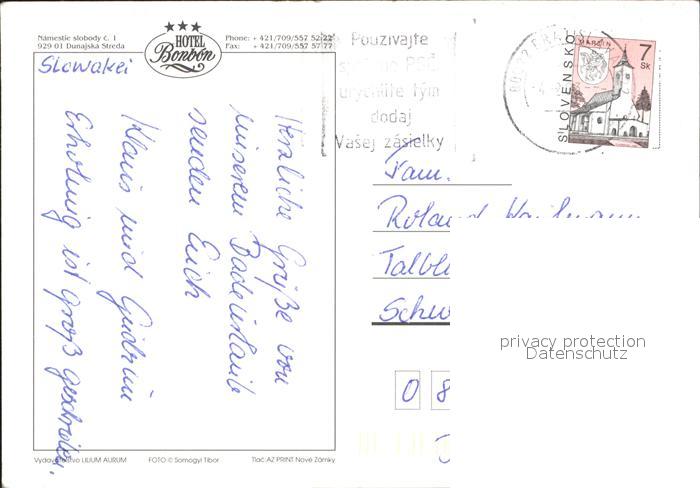 Námestie slobody č. 1
929 01 Dunajská Streda
HOTEL
Bonbón
Phone: + 421/709/557 52 22
Fax: + 421/709/557 57 77
Slowakei
Herzliche Grüße von
unserem Badeurlaub
senden Euch
Klaus und Gudrun
Erholung ist groß geschrieben.
Používajte
PSČ
urýchlite tým
dodaj
Vašej zásielky
MARTIN
7
Sk
SLOVENSKO
Fam.
Roland
Talbl
Schw
0 8
privacy protection
Datenschutz
Vydavateľstvo LILIUM AURUM
FOTO © Somogyi Tibor
Tlač: AZ PRINT Nové Zámky